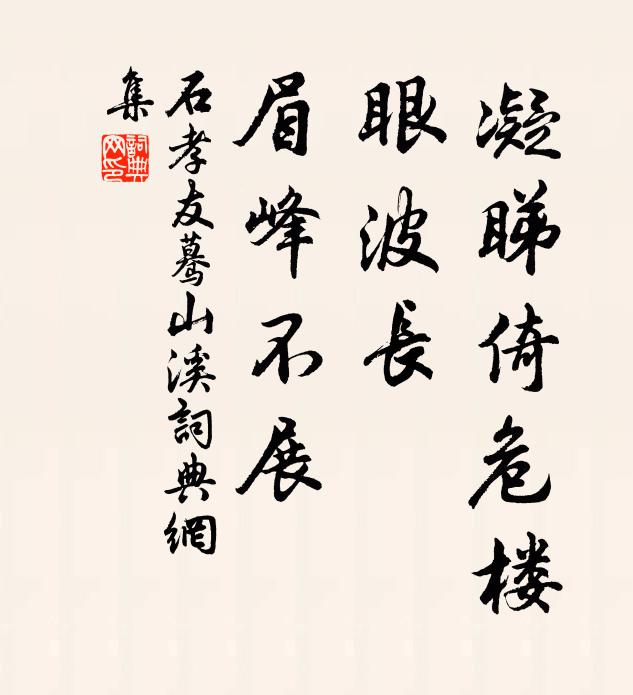 凝睇倚危楼
眼波長
眉峰不展
石孝友驀山溪詞典網
集
詞典
网印